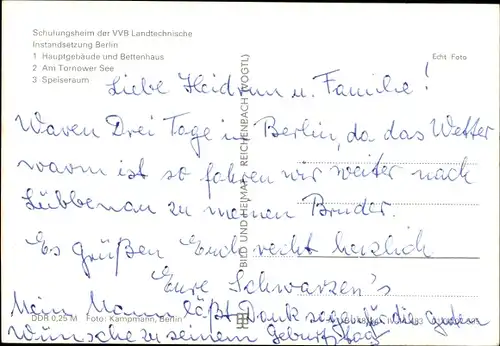 Schulungsheim der VVB Landtechnische
Instandsetzung Berlin
1 Hauptgebäude und Bettenhaus
2 Am Tornower See
3 Speiseraum
Echt Foto
Liebe Heidrun u. Familie!
Waren Drei Tage in Berlin, da das Wetter
warm ist so fahren wir weiter nach
Lübbenau zu meinen Bruder.
Es grüßen Euch recht herzlich
Eure Schwarzen's
Mein Mann läßt Dank sagen für die guten
Wünsche zu seinem Geburtstag
BILD UND HEIMAT REICHENBACH (VOGTL)
DDR 0,25 M Foto: Kampmann, Berlin